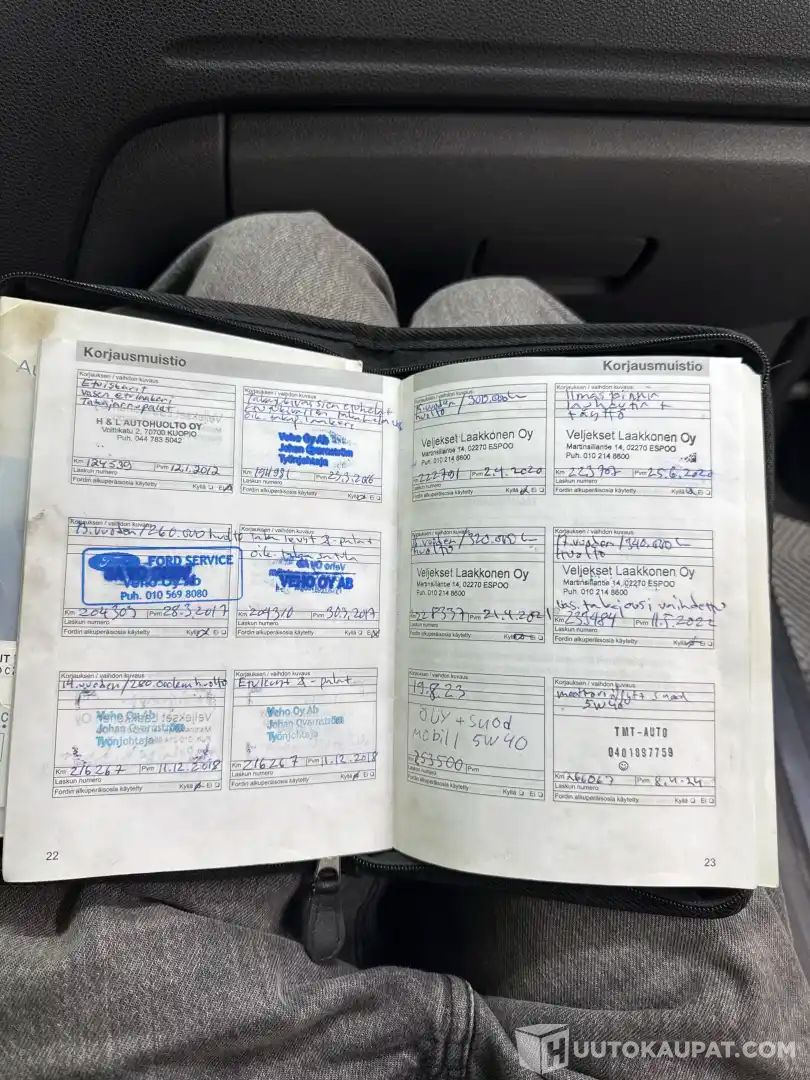 Korjausmuistio
Korjauksen / vaihdon kuvaus
Etuiskarit
Vasen etu
H & L AUTOHUOLTO OY
Volttikatu 2, 70700 KUOPIO
Puh. 044 783 5042
Km 124539 Pvm 12.1.2012
Laskun numero
Fordin alkuperäisosia käytetty Kyllä Ei
Korjauksen / vaihdon kuvaus
Veho Oy Ab
Johan Qvarnström
Työnjohtaja
Km Pvm
Laskun numero
Fordin alkuperäisosia käytetty Kyllä Ei
Korjauksen / vaihdon kuvaus
13. vuoden /260.000 huolto
FORD SERVICE
Veho Oy Ab
Puh. 010 569 8080
Km 204303 Pvm 28.3.2017
Laskun numero
Fordin alkuperäisosia käytetty Kyllä Ei
Taka levyt & -palat
VEHO OY AB
Km 204310 Pvm 30.3.2017
Laskun numero
Fordin alkuperäisosia käytetty Kyllä Ei
Korjauksen / vaihdon kuvaus
14. vuoden /280 000km huolto
Veho Oy Ab
Johan Qvarnström
Työnjohtaja
Km 216267 Pvm 11.12.2018
Laskun numero
Fordin alkuperäisosia käytetty Kyllä Ei
Korjauksen / vaihdon kuvaus
& -palat
Veho Oy Ab
Johan Qvarnström
Työnjohtaja
Km 216267 Pvm 11.12.2018
Laskun numero
Fordin alkuperäisosia käytetty Kyllä Ei
22
Korjausmuistio
Korjauksen / vaihdon kuvaus
vuoden /300.000
huolto
Veljekset Laakkonen Oy
Martinsillantie 14, 02270 ESPOO
Puh. 010 214 8600
Km 222791 Pvm 2.4.2020
Laskun numero
Fordin alkuperäisosia käytetty Kyllä Ei
Korjauksen / vaihdon kuvaus
Ilmastoinnin
täyttö
Veljekset Laakkonen Oy
Martinsillantie 14, 02270 ESPOO
Puh. 010 214 8600
Km 223907 Pvm 25.6.2020
Laskun numero
Fordin alkuperäisosia käytetty Kyllä Ei
Korjauksen / vaihdon kuvaus
vuoden /320.000
huolto
Veljekset Laakkonen Oy
Martinsillantie 14, 02270 ESPOO
Puh. 010 214 8600
Km Pvm 21.4.2021
Laskun numero
Fordin alkuperäisosia käytetty Kyllä Ei
Korjauksen / vaihdon kuvaus
17. vuoden /340.000
huolto
Veljekset Laakkonen Oy
Martinsillantie 14, 02270 ESPOO
Puh. 010 214 8600
vas. takajousi vaihdettu
Km Pvm 11.5.2022
Laskun numero
Fordin alkuperäisosia käytetty Kyllä Ei
Korjauksen / vaihdon kuvaus
19.8.23
ÖLJY + SUOD
MOBIL 1 5W40
Km 253500 Pvm
Laskun numero
Fordin alkuperäisosia käytetty Kyllä Ei
Korjauksen / vaihdon kuvaus
moottoriöljyt suod
5W40
TMT-AUTO
0401887759
Km 266067 Pvm 8.4.24
Laskun numero
Fordin alkuperäisosia käytetty Kyllä Ei
23
HUUTOKAUPAT.COM